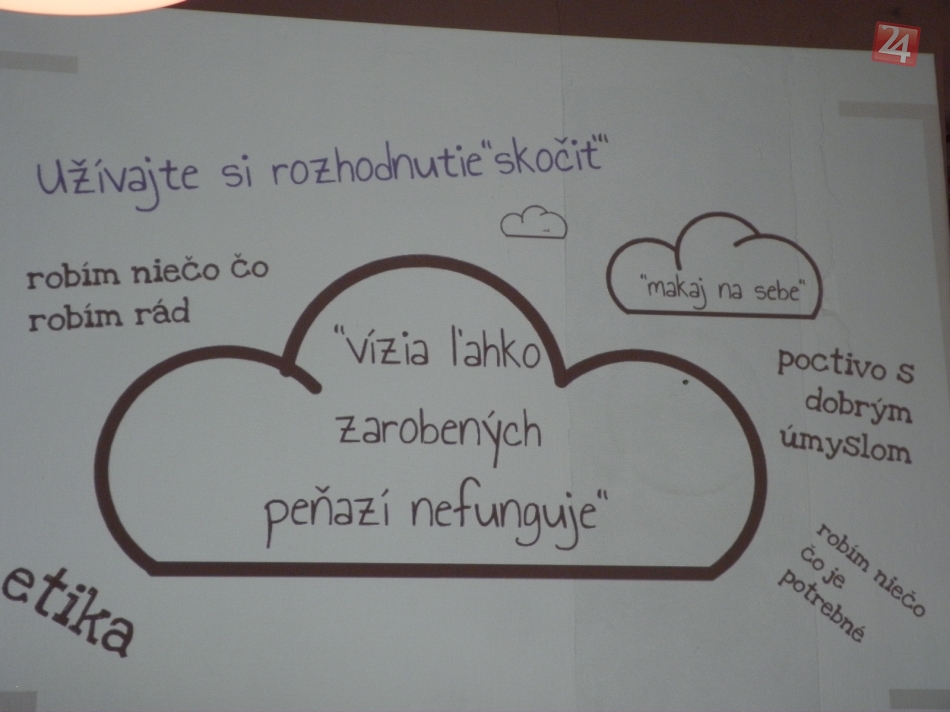 24
Užívajte si rozhodnutie "skočiť"
robím niečo čo
robím rád
"makaj na sebe"
"vízia ľahko
zarobených
peňazí nefunguje"
poctivo s
dobrým
úmyslom
robím niečo
čo je
potrebné
etika